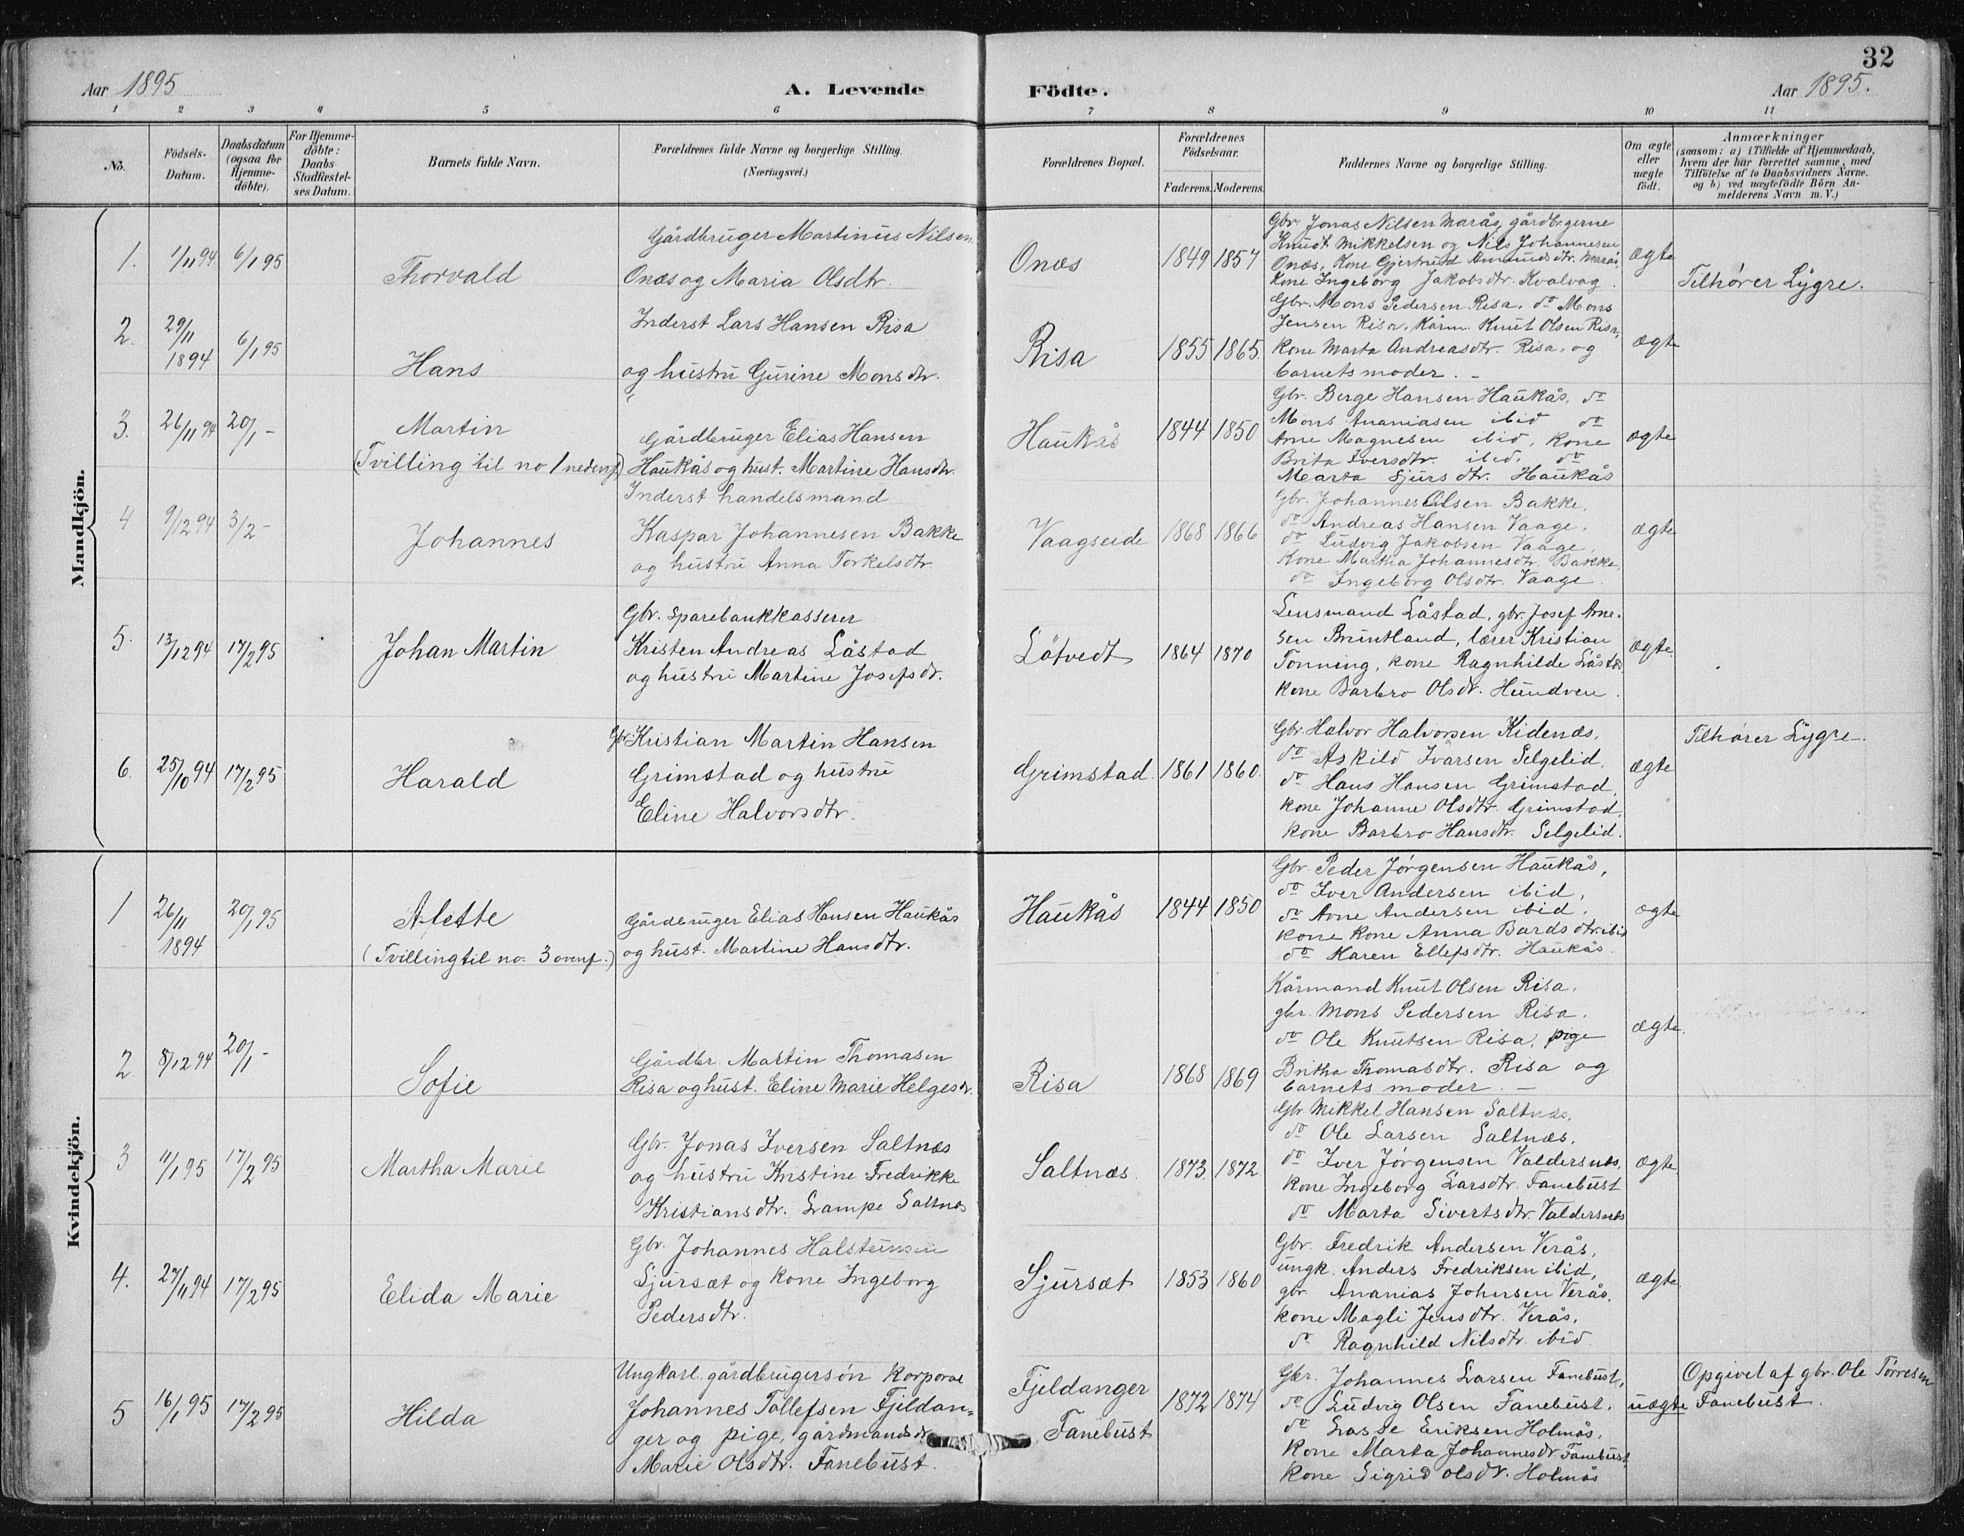 32
Aar 1895 A. Levende Födte. Aar 1895.
1 2 3 4 5 6 7 8 9 10 11
No.
Födsels-
Datum.
Daabsdatum
(ogsaa for
Hjemme-
döbte).
For Hjemme-
döbte:
Daabs-
Stadfæstel-
ses Datum.
Barnets fulde Navn.
Forældrenes fulde Navne og borgerlige Stilling.
(Næringsvei.)
Forældrenes Bopæl.
Forældrenes
Födselsaar.
Faderens. Moderens.
Faddernes Navne og borgerlige Stilling.
Om ægte
eller
uægte
födt.
Anmærkninger
(saasom: a) i Tilfælde af Hjemmedaab,
hvem der har forrettet samme, med
Tilföielse af to Daabsvidners Navne,
og b) ved uægtefödte Börn An-
melderens Navn m. V.)
Mandkjön.
1. 1/11 94 6/1 95
Thorvald
Gårdbruger Martinus Nilsen
Onæs og Maria Olsdtr.
Onæs
1849 1857
Gbr. Jonas Nilsen Marås, gårdbrgerne
Knudt Mikkelsen og Nils Johannesen
Onæs, Kone Gjertrud Amundsdtr. Marås,
Kone Ingeborg Jakobsdtr. Kvalvag.
ægte
Tilhører Lygre.
2. 29/11
1894
6/1 95
Hans
Inderst Lars Hansen Risa
og hustru Gurine Monsdtr.
Risa
1855 1865.
Gbr. Mons Pedersen Risa, do Mons
Jensen Risa, Kårm. Knut Olsen Risa,
kone Marta Andreasdtr. Risa, og
barnets moder. -
ægte
3. 26/11 94 20/1 -
Martin
(Tvilling til no 1 nedenf.)
Gårdbruger Elias Hansen
Haukås og hust. Martine Hansdtr.
Haukås
1844 1850
Gbr. Berge Hansen Haukås, do
Mons Ananiasen ibid do
Arne Magnesen ibid, kone
Brita Iversdtr. ibid, do
Marta Sjursdtr. Haukås
ægte
4 9/12 94 3/2 -
Johannes
Inderst handelsmand
Kaspar Johannesen Bakke
og hustru Anna Torkelsdtr.
Vaagseide
1868 1866
Gbr. Johannes Olsen Bakke,
do Andreas Hansen Vaage,
do Ludvig Jakobsen Vaage,
Kone Martha Johannesdtr. Bakke,
do Ingeborg Olsdtr. Vaage.
ægte
5. 13/12 94 17/2 95
Johan Martin
Gbr. Sparebankkasserer
Kristen Andreas Låstad
og hustru Martine Josefsdr.
Løtvedt
1864 1870
Lensmand Låstad, gbr. Josef Arne-
sen Bruntland, lærer Kristian
Tonning, kone Ragnhilde Låstad
kone Barbro Olsdr. Hundven.
ægte.
6. 25/10 94 17/2 95
Harald
Gbr. Kristian Martin Hansen
Grimstad og hustru
Eline Halvorsdtr.
Grimstad.
1861 1860.
Gbr. Halvor Halvorsen Kidenæs,
do Askild Ivarsen Selgelid,
do Hans Hansen Grimstad,
kone Johanne Olsdtr. Grimstad,
kone Barbro Hansdtr. Selgelid.
ægte
Tilhører Lygre.
Kvindekjön.
1 26/11
1894
20/1 95
Alette
(Tvilling til no. 3 ovenf.)
Gårdbruger Elias Hansen Haukås
og hust. Martine Hansdtr.
Haukås
1844 1850
Gbr. Peder Jørgensen Haukås,
do Iver Andersen ibid,
do Arne Andersen ibid,
kone kone Anna Bardsdtr. ibid
do Karen Ellefsdtr. Haukås.
ægte
2 8/12 94 20/1 -
Sofie
Gårdbr. Martin Thomasen
Risa og hust. Eline Marie Helgesdr.
Risa
1868 1869
Kårmand Knut Olsen Risa,
gbr. Mons Pedersen Risa,
do Ole Knutsen Risa, pige
Britha Thomasdtr. Risa og
barnets moder. -
ægte.
3 11/1 95 17/2 95
Martha Marie
Gbr. Jonas Iversen Saltnæs
og hustru Kristine Fredrikke
Kristiansdtr. Lampe Saltnæs
Saltnæs.
1873. 1872
Gbr. Mikkel Hansen Saltnæs,
do Ole Larsen Saltnæs,
do Iver Jørgensen Valdersnæs,
kone Ingeborg Larsdtr. Fanebust
do Marta Sivertsdtr. Valdersnæs
ægte
4. 27/11 94 17/2 95
Elida Marie
Gbr. Johannes Halstensen
Sjursæt og kone Ingeborg
Pedersdtr.
Sjursæt
1853 1860
Gbr. Fredrik Andersen Verås,
ungk. Anders Fredriksen ibid,
gbr. Ananias Johnsen Verås,
kone Magli Jensdtr. Verås,
do Ragnhild Nilsdtr. ibid.
ægte
5 16/1 95 17/2 95
Hilda
Ungkarl. gårdbrugersøn korporal
Johannes Tollefsen Fjeldan-
ger og pige, gårdmandsdr.
Marie Olsdtr. Fanebust.
Fjeldanger
Fanebust
1872 1874
Gbr. Johannes Larsen Fanebust,
do Ludvig Olsen Fanebust,
do Lasse Eriksen Holmås,
kone Marta Johannesdr. Fanebust,
kone Sigrid Olsdr. Holmås
uægte
Opgivet af gbr. Ole Tørresen
Fanebust.